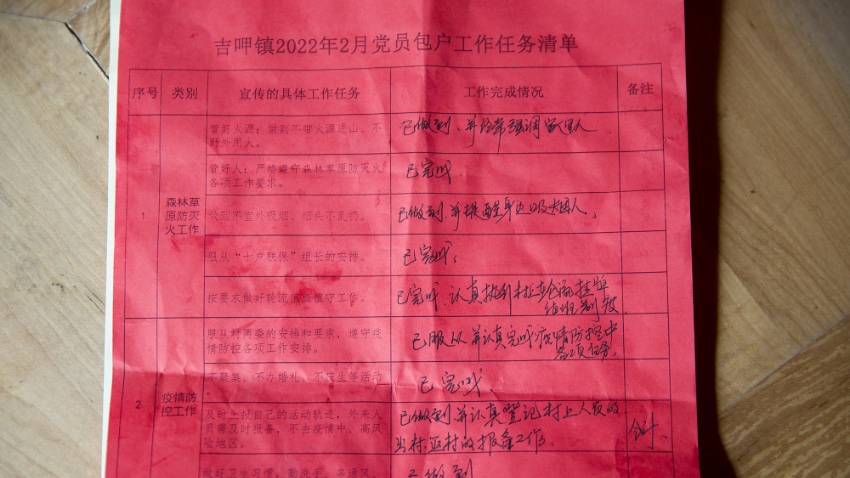 吉呷镇2022年2月党员包户工作任务清单
序号 类别 宣传的具体工作任务 工作完成情况 备注
1
森林草
原防灭
火工作
管好火源：做到不带火源进山、不
野外用火。
已做到，并经常强调家里人
管好人：严格遵守森林草原防灭火
各项工作要求。
已完成.
做到不室外吸烟，烟头不乱扔。
已做到并提醒身边吸烟人.
服从“十户联保”组长的安排。
已完成.
按要求做好轮流值班值守工作。
已完成 认真执行村上轮流挂牌
值班制度
2
疫情防
控工作
服从村两委的安排和要求，遵守疫
情防控各项工作安排。
已服从并认真完成疫情防控中
各项任务.
不聚集、不办婚礼、不庆生等活动
已完成.
及时上报自己的活动轨迹，外来人
员需及时报备，不去疫情中、高风
险地区。
已做到并认真登记村上人员的
出村返村的报备工作.
做好卫生习惯：勤洗手、多通风、
已做到